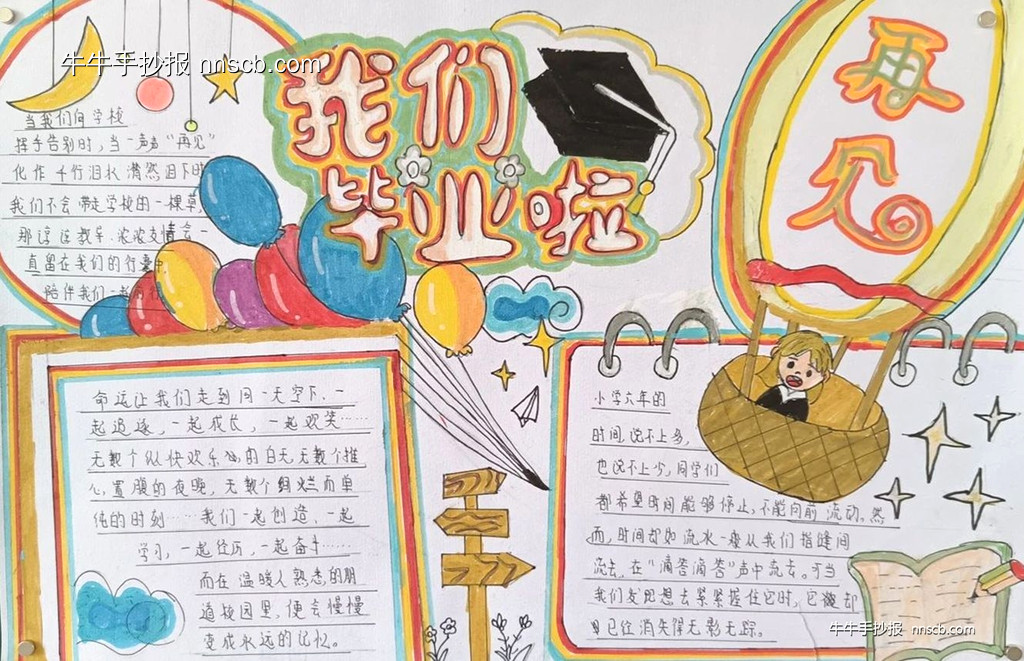 牛牛手抄报 nnscb.com
我们
毕业啦
再
见
当我们向学校
挥手告别时,当一声声“再见”
化作千行泪水潸然泪下时
我们不会带走学校的一棵草,
那谆谆教年.浓浓友情会一
直留在我们的行囊中,
陪伴我们一
命运让我们走到同一天空下,一
起追逐,一起成长,一起欢笑……
无数个纵快欢乐的白天,无数个推
心置腹的夜晚,无数个绚烂而单
纯的时刻……我们一起创造,一起
学习,一起经历,一起奋斗……
而在温暖人熟悉的朋
道校园里,便会慢慢
变成永远的记忆。
小学六年的
时间,说不上多,
也说不上少,同学们
都希望时间能够停止,不能向前流动。然
而,时间却如流水一样从我们指缝间
流去,在“滴答滴答”声中流去。可当
我们发现想去紧紧握住它时,它却
已经消失得无影无踪。
牛牛手抄报 nnscb.com